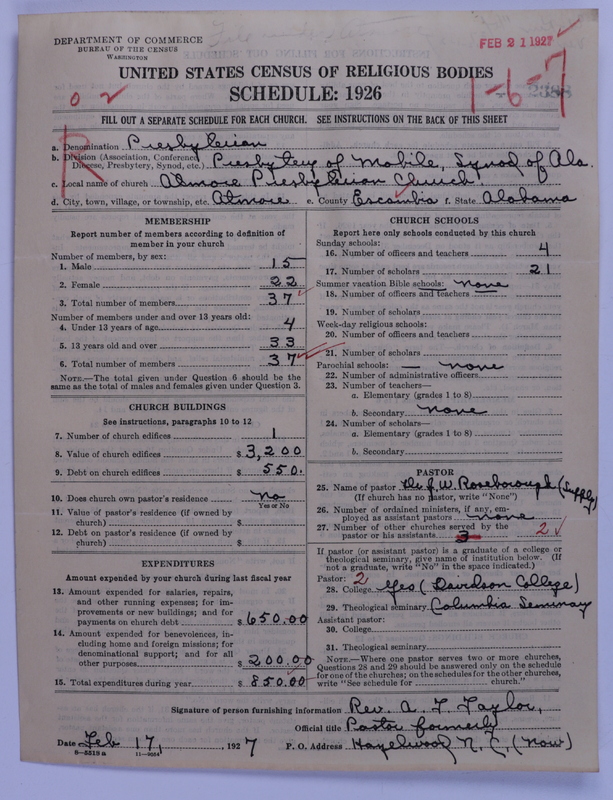 DEPARTMENT OF COMMERCE
BUREAU OF THE CENSUS
WASHINGTON
FEB 21 1927
UNITED STATES CENSUS OF RELIGIOUS BODIES
SCHEDULE: 1926
1-6-7
2388
0 2
R
FILL OUT A SEPARATE SCHEDULE FOR EACH CHURCH. SEE INSTRUCTIONS ON THE BACK OF THIS SHEET
a. Denomination Presbyterian
b. Division (Association, Conference, Diocese, Presbytery, Synod, etc.) Presbytery of Mobile, Synod of Ala.
c. Local name of church Atmore Presbyterian Church.
d. City, town, village, or township, etc. Atmore e. County Escambia f. State Alabama
MEMBERSHIP
Report number of members according to definition of
member in your church
Number of members, by sex:
1. Male 15
2. Female 22
3. Total number of members 37
Number of members under and over 13 years old:
4. Under 13 years of age 4
5. 13 years old and over 33
6. Total number of members 37
NOTE.—The total given under Question 6 should be the
same as the total of males and females given under Question 3.
CHURCH BUILDINGS
See instructions, paragraphs 10 to 12
7. Number of church edifices 1
8. Value of church edifices $3,200
9. Debt on church edifices $550.
10. Does church own pastor's residence No
Yes or No
11. Value of pastor's residence (if owned by
church) $
12. Debt on pastor's residence (if owned by
church) $
EXPENDITURES
Amount expended by your church during last fiscal year
13. Amount expended for salaries, repairs,
and other running expenses; for im-
provements or new buildings; and for
payments on church debt $650.00
14. Amount expended for benevolences, in-
cluding home and foreign missions; for
denominational support; and for all
other purposes $200.00
15. Total expenditures during year $850.00
CHURCH SCHOOLS
Report here only schools conducted by this church
Sunday schools:
16. Number of officers and teachers 4
17. Number of scholars 21
Summer vacation Bible schools: none
18. Number of officers and teachers
19. Number of scholars
Week-day religious schools:
20. Number of officers and teachers
21. Number of scholars
Parochial schools: — none
22. Number of administrative officers
23. Number of teachers—
a. Elementary (grades 1 to 8)
b. Secondary none
24. Number of scholars—
a. Elementary (grades 1 to 8)
b. Secondary
PASTOR
25. Name of pastor Dr. J. W. Roseborough (Supply)
(If church has no pastor, write "None")
26. Number of ordained ministers, if any, em-
ployed as assistant pastors none
27. Number of other churches served by the
pastor or his assistants 3 2
If pastor (or assistant pastor) is a graduate of a college or
theological seminary, give name of institution below. (If
not a graduate, write "No" in the space indicated.)
Pastor: 2
28. College Yes (Davidson College)
29. Theological seminary Columbia Seminary
Assistant pastor:
30. College
31. Theological seminary
NOTE.—Where one pastor serves two or more churches,
Questions 28 and 29 should be answered only on the schedule
for one of the churches; on the schedules for the other churches,
write "See schedule for church."
Signature of person furnishing information Rev. A. T. Taylor,
Official title Pastor formerly
Date Feb 17, 1927 P. O. Address Hazelwood N. C. (now)
8—5519 a 11—9054